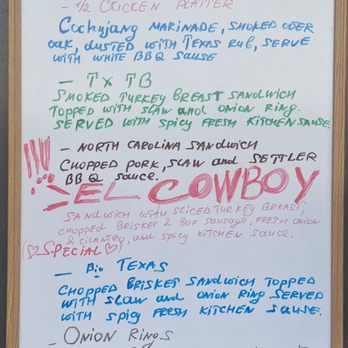 - 1/2 CHICKEN PLATTER
COCHUJANG MARINADE, SMOKED OVER
OAK, DUSTED WITH TEXAS RUB, SERVE
WITH WHITE BBQ SAUSE
- TX TB
SMOKED TURKEY BREAST SANDWICH
TOPPED WITH SLAW AND ONION RING.
SERVED WITH SPICY FRESH KITCHEN SAUSE.
- NORTH CAROLINA SANDWICH
CHOPPED PORK, SLAW and SETTLER
BBQ SAUCE.
!!! EL COWBOY
SANDWICH WITH SLICED TURKEY BREAST,
CHOPPED BRISKET & BBR SAUSAGE, FRESH ONION
& CILANTRO, AND SPICY KITCHEN SAUCE.
(♡SPECIAL♡)
- Big TEXAS
CHOPPED BRISKET SANDWICH TOPPED
WITH SLAW and ONION RING, SERVED
WITH SPICY FRESH KITCHEN SAUSE.
- ONION RINGS